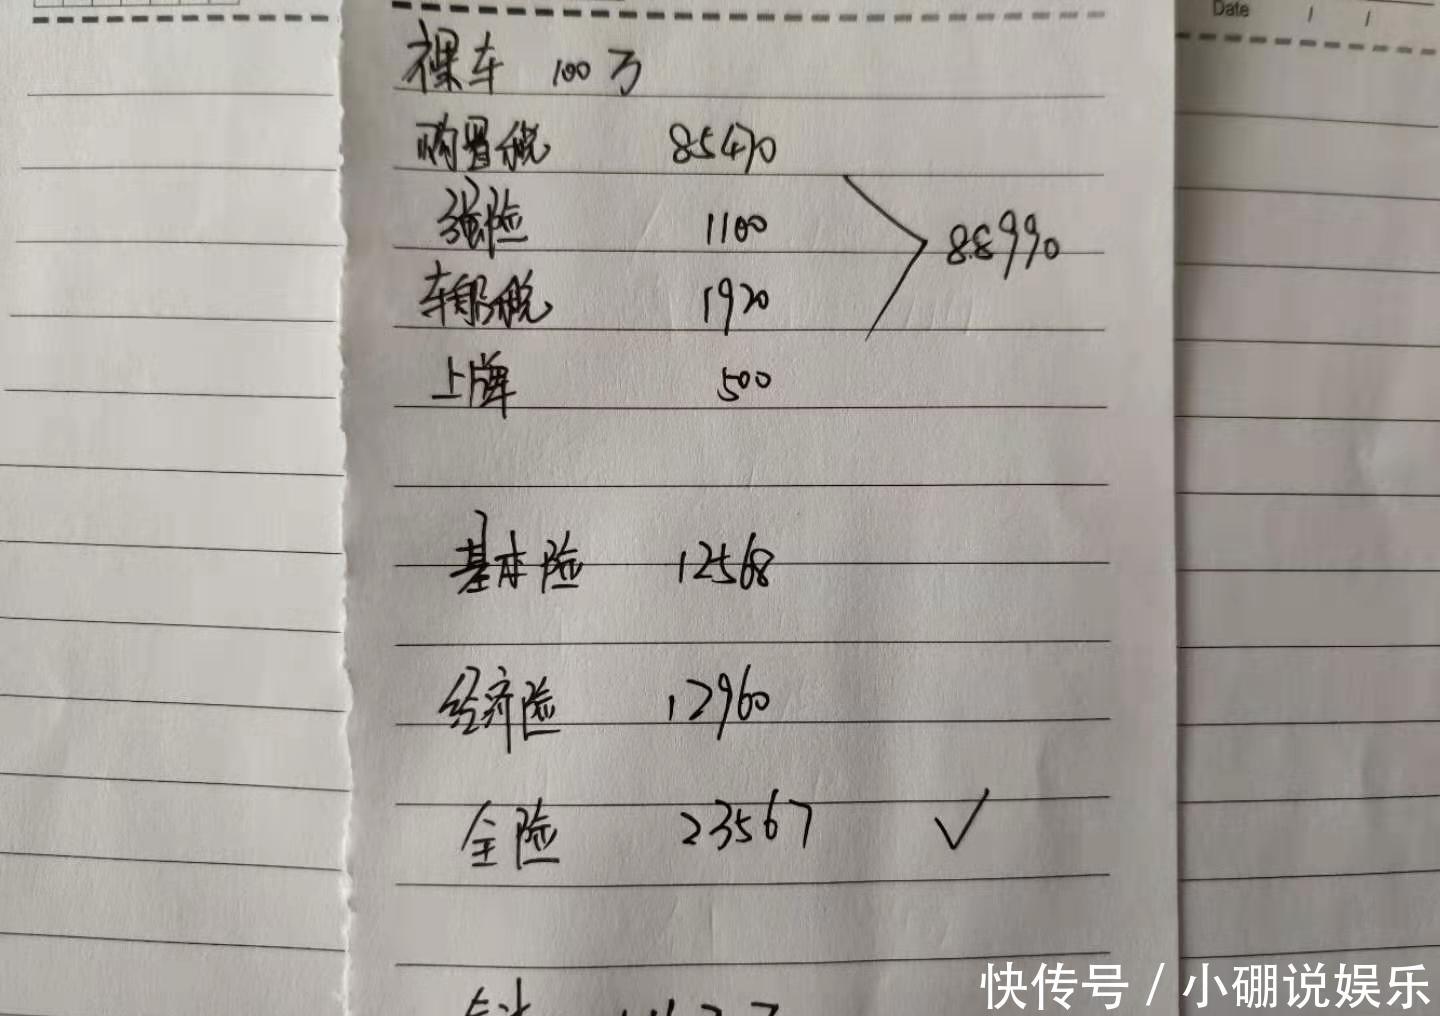 Date / /
裸车 100万
购置税 85470
强险 1100
88990
车船税 1920
上牌 500
基本险 12568
经济险 12960
全险 23567 ✓
快传号 / 小硼说娱乐